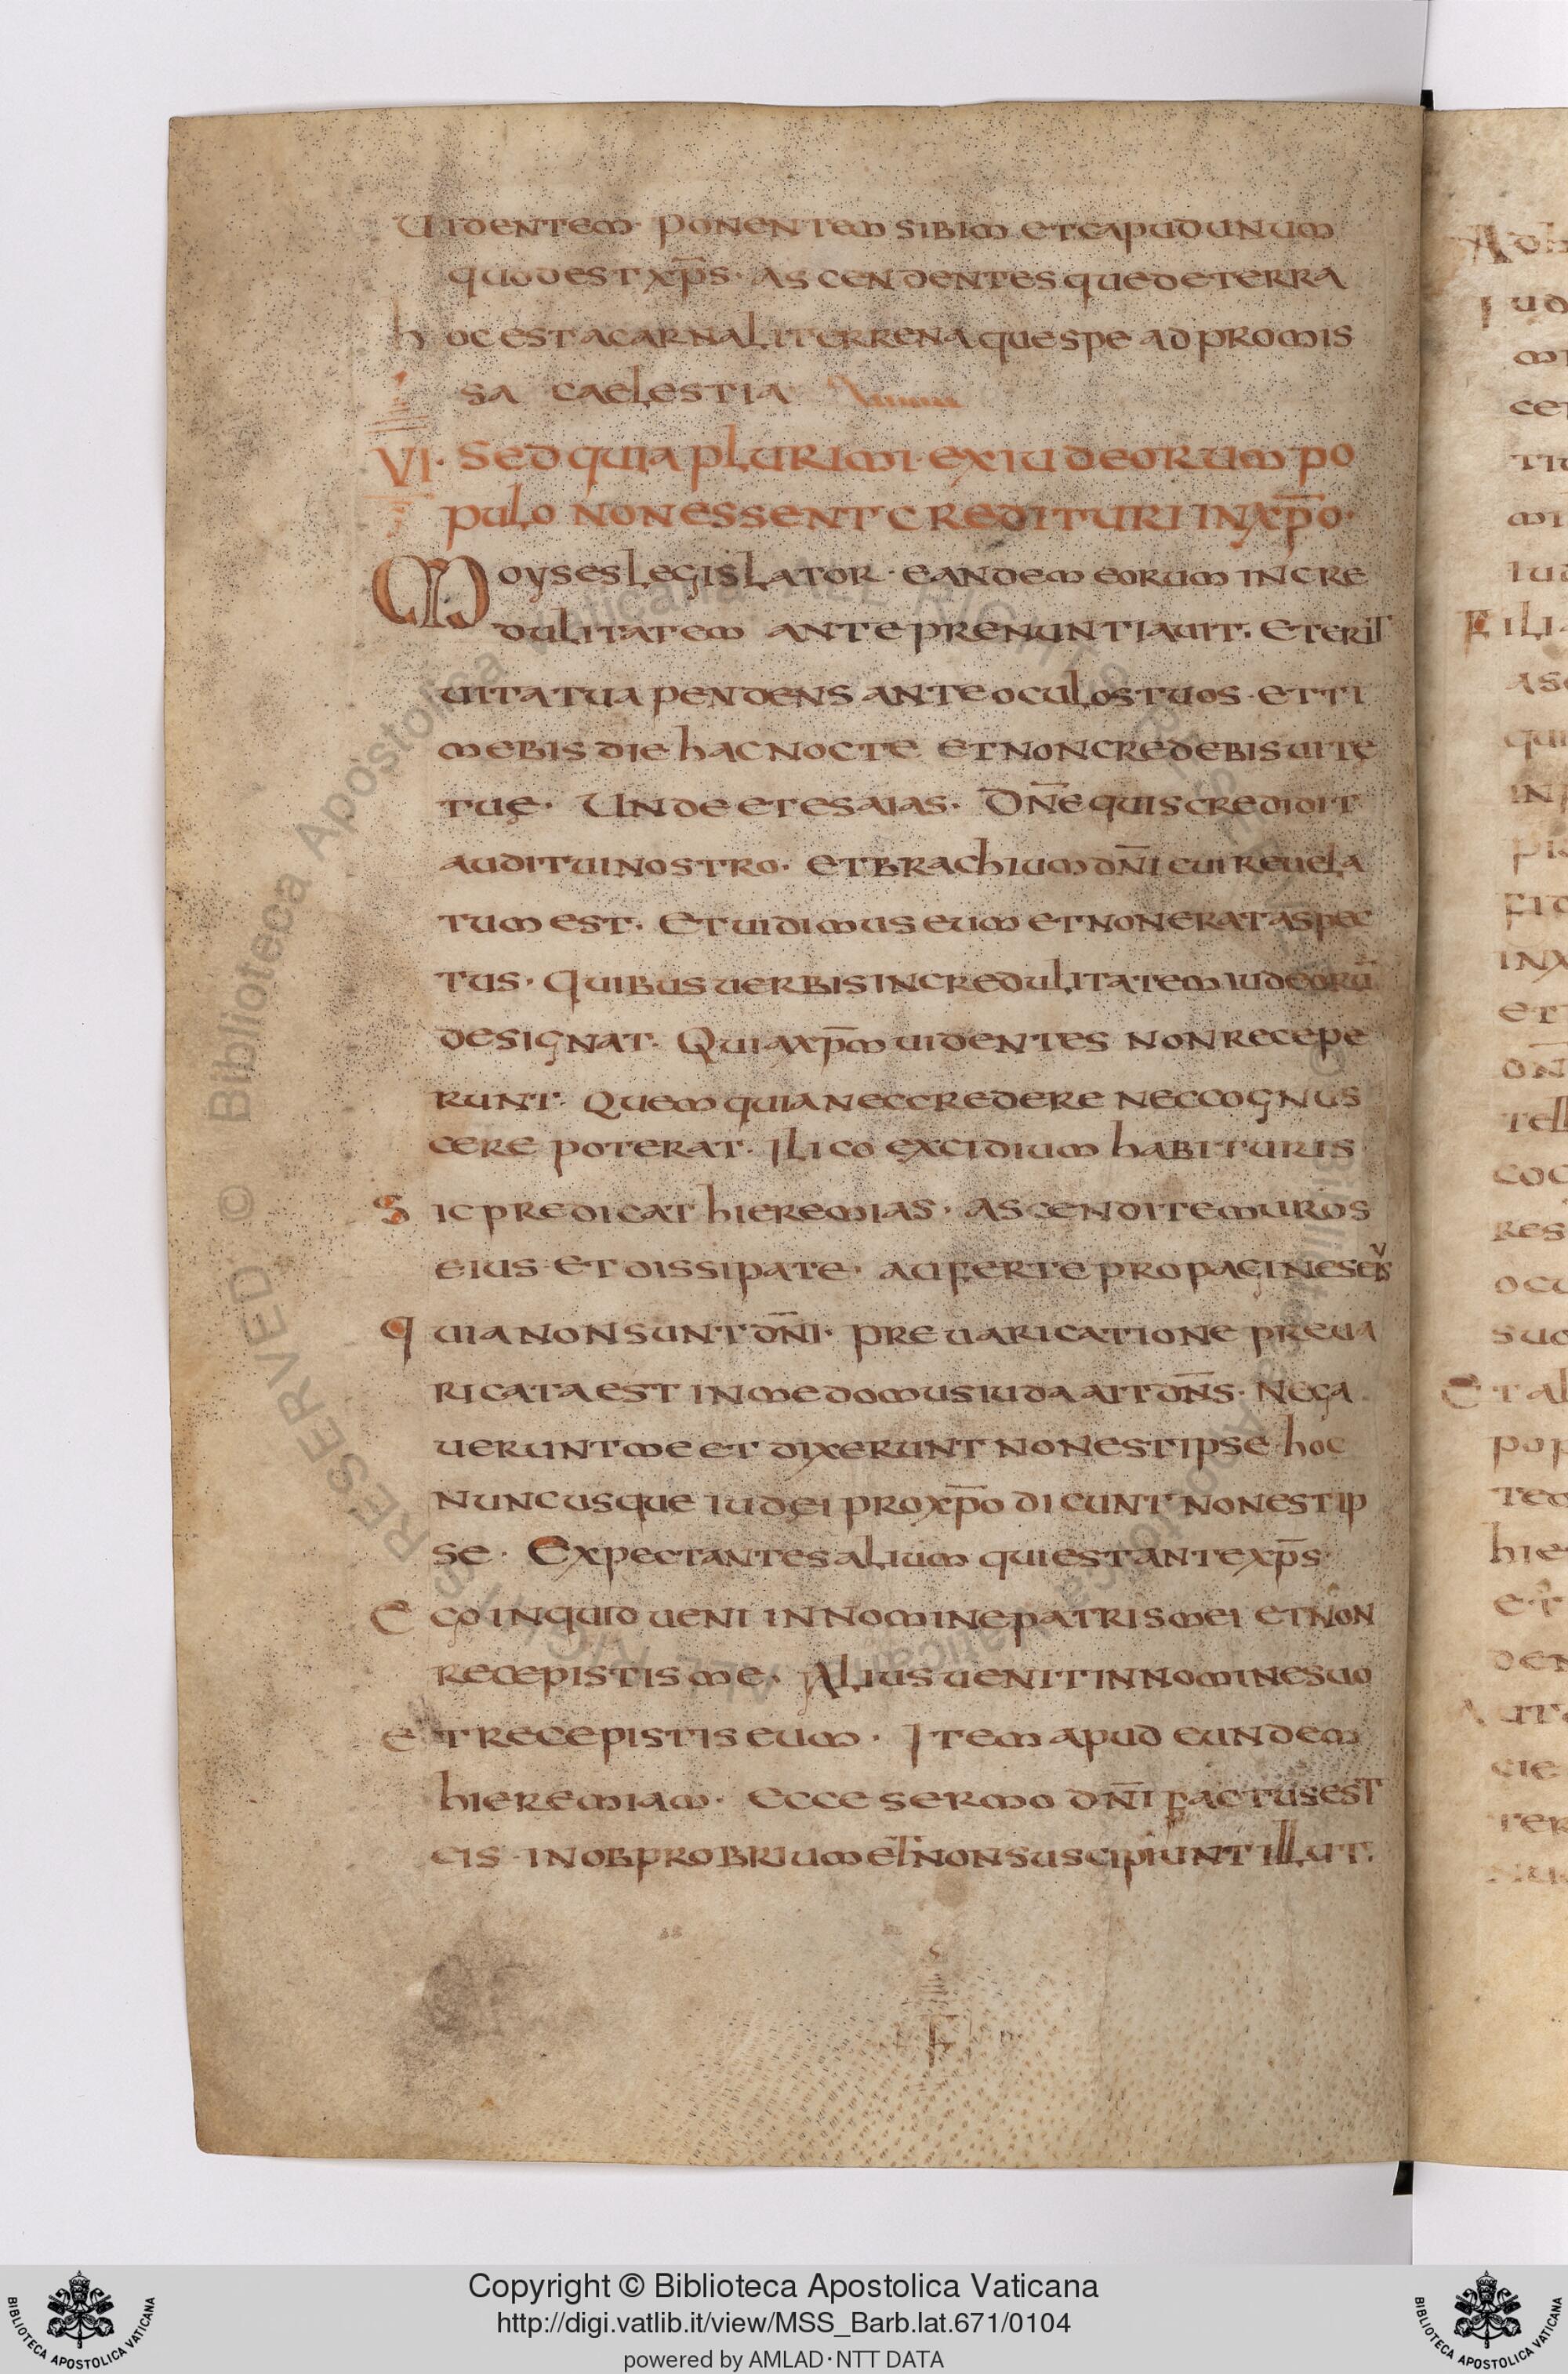 UIDENTEM· PONENTEM SIBIM ET CAPUD UNUM
QUOD EST XP̅S· ASCENDENTESQUE DE TERRA
HOC EST A CARNALI TERRENAQUE SPE AD PROMIS
SA CAELESTIA
VI· SED QUIA PLURIMI· EX IUDEORUM PO
PULO NON ESSENT CREDITURI IN XP̅O·
MOYSES LEGISLATOR· EANDEM EORUM INCRE
DULITATEM ANTE PRENUNTIAUIT· ET ERIT
UITA TUA PENDENS ANTE OCULOS TUOS· ET TI
MEBIS DIE HAC NOCTE ET NON CREDEBIS UITE
TUĘ· UNDE ET ESAIAS· DN̅E QUIS CREDIDIT
AUDITUI NOSTRO· ET BRACHIUM DN̅I CUI REUELA
TUM EST· ET UIDIMUS EUM ET NON ERAT ASPEC
TUS· QUIBUS UERBIS INCREDULITATEM IUDEORU̅
DESIGNAT· QUIA XP̅M UIDENTES NON RECEPE
RUNT· QUEM QUIA NEC CREDERE NEC COGNUS
CERE POTERAT· ILICO EXCIDIUM HABITURIS
SIC PREDICAT HIEREMIAS· ASCENDITE MUROS
EIUS ET DISSIPATE· AUFERTE PROPAGINES EIUS
QUIA NON SUNT DN̅I· PREUARICATIONE PREUA
RICATA EST IN ME DOMUS IUDA AIT DN̅S· NEGA
UERUNT ME ET DIXERUNT NON EST IPSE· HOC
NUNC USQUE IUDEI PRO XP̅O DICUNT NON EST IP
SE· EXPECTANTES ALIUM QUI EST ANTEXP̅S·
EGO INQUID UENI IN NOMINE PATRIS MEI ET NON
RECEPISTIS ME· ALIUS UENIT IN NOMINE SUO
ET RECEPISTIS EUM· ITEM APUD EUNDEM
HIEREMIAM· ECCE SERMO DN̅I FACTUS EST
EIS· IN OBPROBRIUM ET NON SUSCIPIUNT ILLUT·
Copyright © Biblioteca Apostolica Vaticana
http://digi.vatlib.it/view/MSS_Barb.lat.671/0104
powered by AMLAD·NTT DATA
BIBLIOTECA APOSTOLICA VATICANA
BIBLIOTECA APOSTOLICA VATICANA